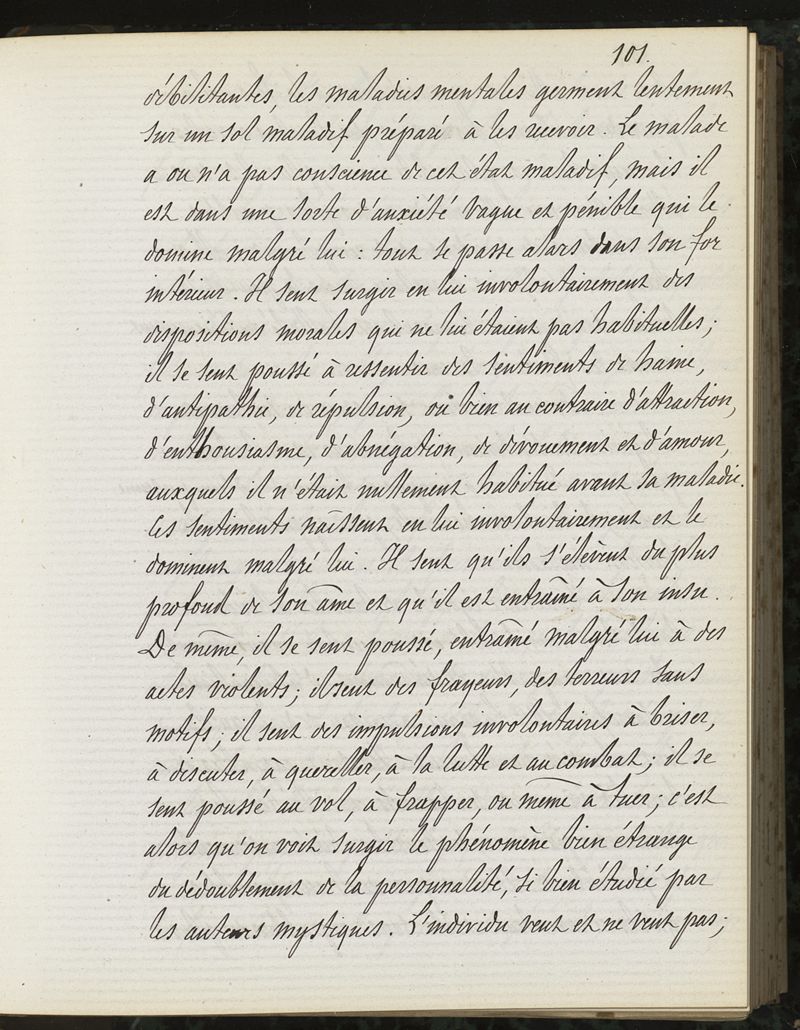 101.
débilitantes, les maladies mentales germent lentement
sur un sol maladif préparé à les recevoir. Le malade
a ou n'a pas conscience de cet état maladif, mais il
est dans une sorte d'anxiété vague et pénible qui le
domine malgré lui : tout se passe alors dans son for
intérieur. Il sent surgir en lui involontairement des
dispositions morales qui ne lui étaient pas habituelles ;
il se sent poussé à ressentir des sentiments de haine,
d'antipathie, de répulsion, ou bien au contraire d'attraction,
d'enthousiasme, d'abnégation, de dévouement et d'amour,
auxquels il n'était nullement habitué avant sa maladie.
Ces sentiments naissent en lui involontairement et le
dominent malgré lui. Il sent qu'ils s'élèvent du plus
profond de son âme et qu'il est entraîné à son insu.
De même, il se sent poussé, entraîné malgré lui à des
actes violents ; il sent des frayeurs, des terreurs sans
motifs ; il sent des impulsions involontaires à briser,
à discuter, à quereller, à la lutte et au combat ; il se
sent poussé au vol, à frapper, ou même à tuer ; c'est
alors qu'on voit surgir le phénomène bien étrange
du dédoublement de la personnalité, si bien étudié par
les auteurs mystiques. L'individu veut et ne veut pas ;